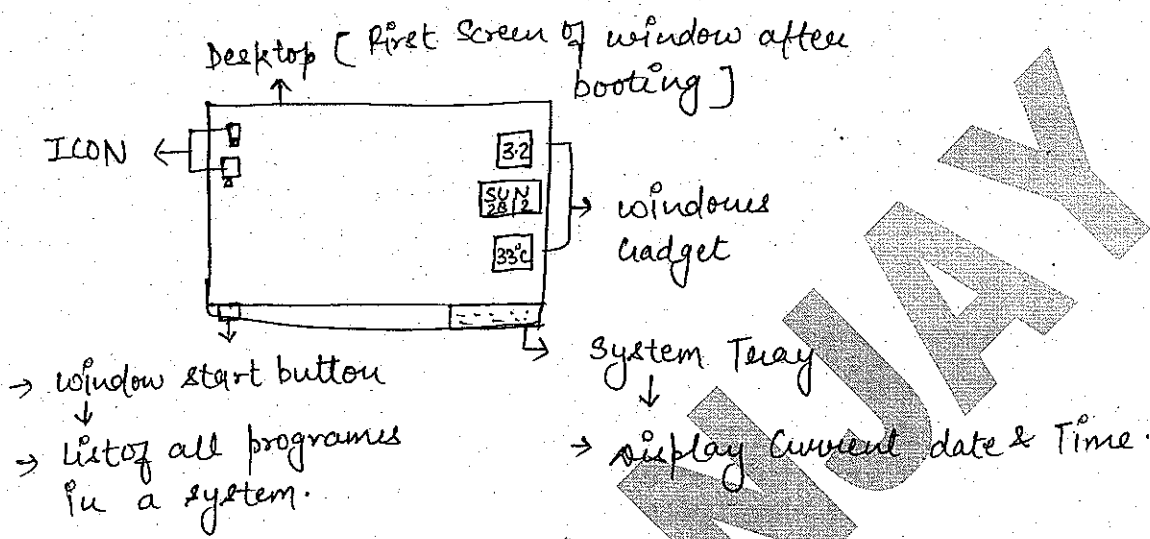 Desktop [ First Screen of window after
booting ]
ICON
3.2
SUN
28/2
33°C
windows
Gadget
System Tray
→ window start button
→ List of all programes
in a system.
→ Display Current date & Time.
NUAY